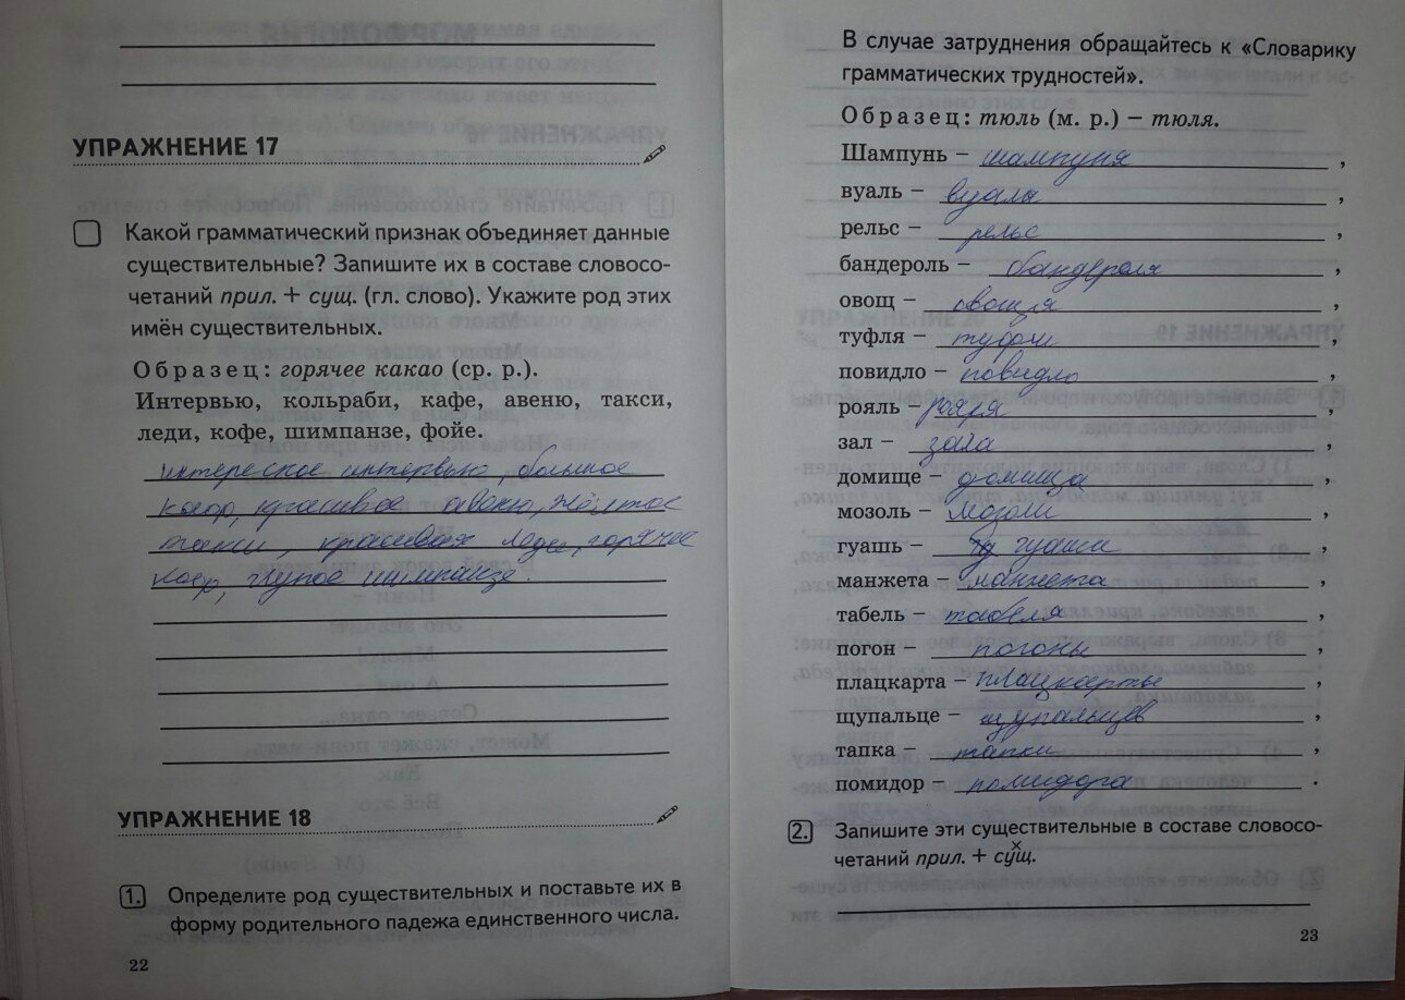 УПРАЖНЕНИЕ 17
Какой грамматический признак объединяет данные
существительные? Запишите их в составе словосо-
четаний прил. + сущ. (гл. слово). Укажите род этих
имён существительных.
Образец: горячее какао (ср. р.).
Интервью, кольраби, кафе, авеню, такси,
леди, кофе, шимпанзе, фойе.
интересное интервью, большое
кафе, красивое авеню, жёлтое
такси, красивая леди, горячее
кофе, глупое шимпанзе.
УПРАЖНЕНИЕ 18
1. Определите род существительных и поставьте их в
форму родительного падежа единственного числа.
22
В случае затруднения обращайтесь к «Словарику
грамматических трудностей».
Образец: тюль (м. р.) – тюля.
Шампунь – шампуня,
вуаль – вуали,
рельс – рельс,
бандероль – бандероля,
овощ – овоща,
туфля – туфли,
повидло – повидло,
рояль – рояля,
зал – зала,
домище – домища,
мозоль – мозоли,
гуашь – гуаши,
манжета – манжета,
табель – табеля,
погон – погоны,
плацкарта – плацкарты,
щупальце – щупальцев,
тапка – тапки,
помидор – помидора.
2. Запишите эти существительные в составе словосо-
четаний прил. + сущ.
23